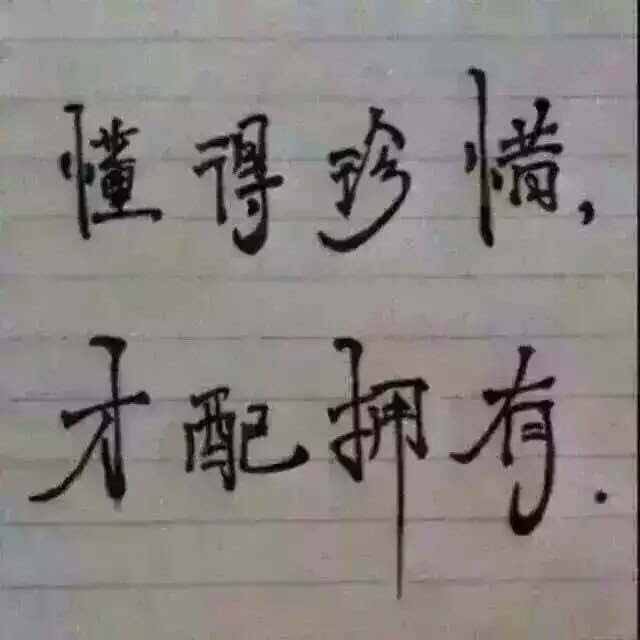 懂得珍惜,
才配拥有.